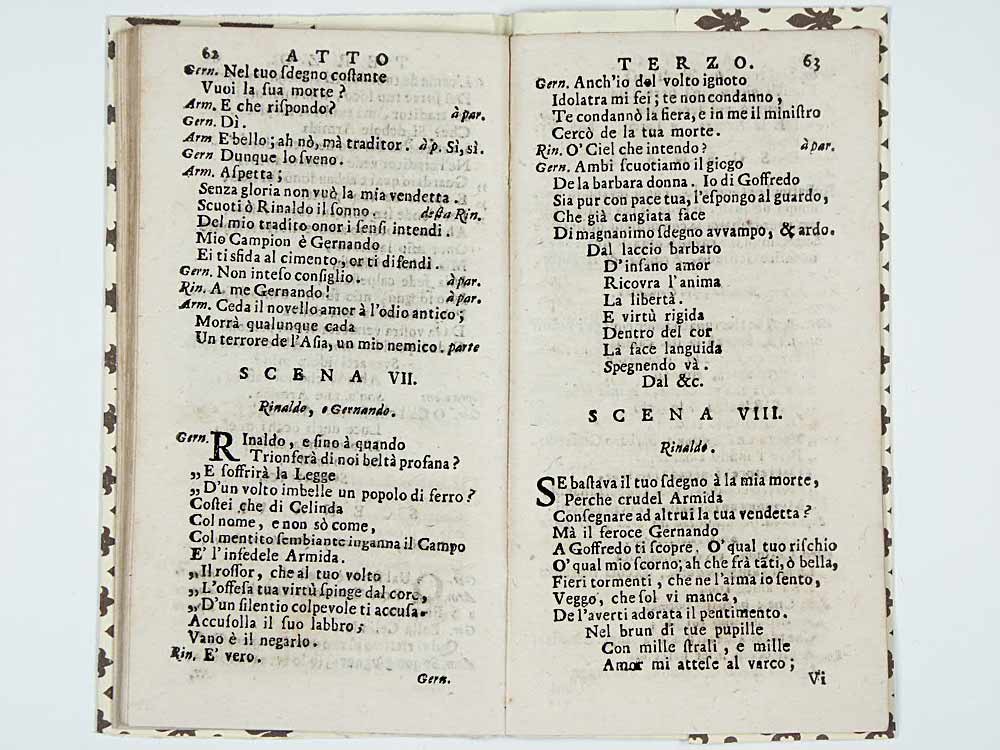 62 ATTO
Gern. Nel tuo ſdegno coſtante
Vuoi la ſua morte?
Arm. E che riſpondo? à par.
Gern. Dì.
Arm E bello; ah nò, mà traditor. à p. Sì, sì.
Gern Dunque lo ſveno.
Arm. Aſpetta;
Senza gloria non vuò la mia vendetta.
Scuoti ò Rinaldo il ſonno. deſta Rin.
Del mio tradito onor i ſenſi intendi.
Mio Campion è Gernando
Ei ti sfida al cimento, or ti difendi.
Gern. Non inteſo conſiglio. à par.
Rin. A me Gernando! à par.
Arm. Ceda il novello amor à l'odio antico;
Morrà qualunque cada
Un terrore de l'Aſia, un mio nemico. parte
SCENA VII.
Rinaldo, e Gernando.
Gern. RInaldo, e ſino à quando
Trionferà di noi beltà profana?
„E ſoffrirà la Legge
„D'un volto imbelle un popolo di ferro?
Coſtei che di Celinda
Col nome, e non sò come,
Col mentito ſembiante inganna il Campo
E' l'infedele Armida.
„Il roſſor, che al tuo volto
„L'offeſa tua virtù ſpinge dal core,
„D'un ſilentio colpevole ti accuſa.
Accuſolla il ſuo labbro;
Vano è il negarlo.
Rin. E' vero.
Gern.
TERZO. 63
Gern. Anch'io del volto ignoto
Idolatra mi fei; te non condanno,
Te condannò la fiera, e in me il miniſtro
Cercò de la tua morte.
Rin. O' Ciel che intendo? à par.
Gern. Ambi ſcuotiamo il giogo
De la barbara donna. Io di Goffredo
Sia pur con pace tua, l'eſpongo al guardo,
Che già cangiata face
Di magnanimo ſdegno avvampo, & ardo.
Dal laccio barbaro
D'inſano amor
Ricovra l'anima
La libertà.
E virtù rigida
Dentro del cor
La face languida
Spegnendo và.
Dal &c.
SCENA VIII.
Rinaldo.
SE baſtava il tuo ſdegno à la mia morte,
Perche crudel Armida
Conſegnare ad altrui la tua vendetta?
Mà il feroce Gernando
A Goffredo ti ſcopre. O' qual tuo riſchio
O' qual mio ſcorno; ah che frà tāti, ò bella,
Fieri tormenti, che ne l'alma io ſento,
Veggo, che ſol vi manca,
De l'averti adorata il pentimento.
Nel brun di tue pupille
Con mille ſtrali, e mille
Amor mi atteſe al varco;
Vi